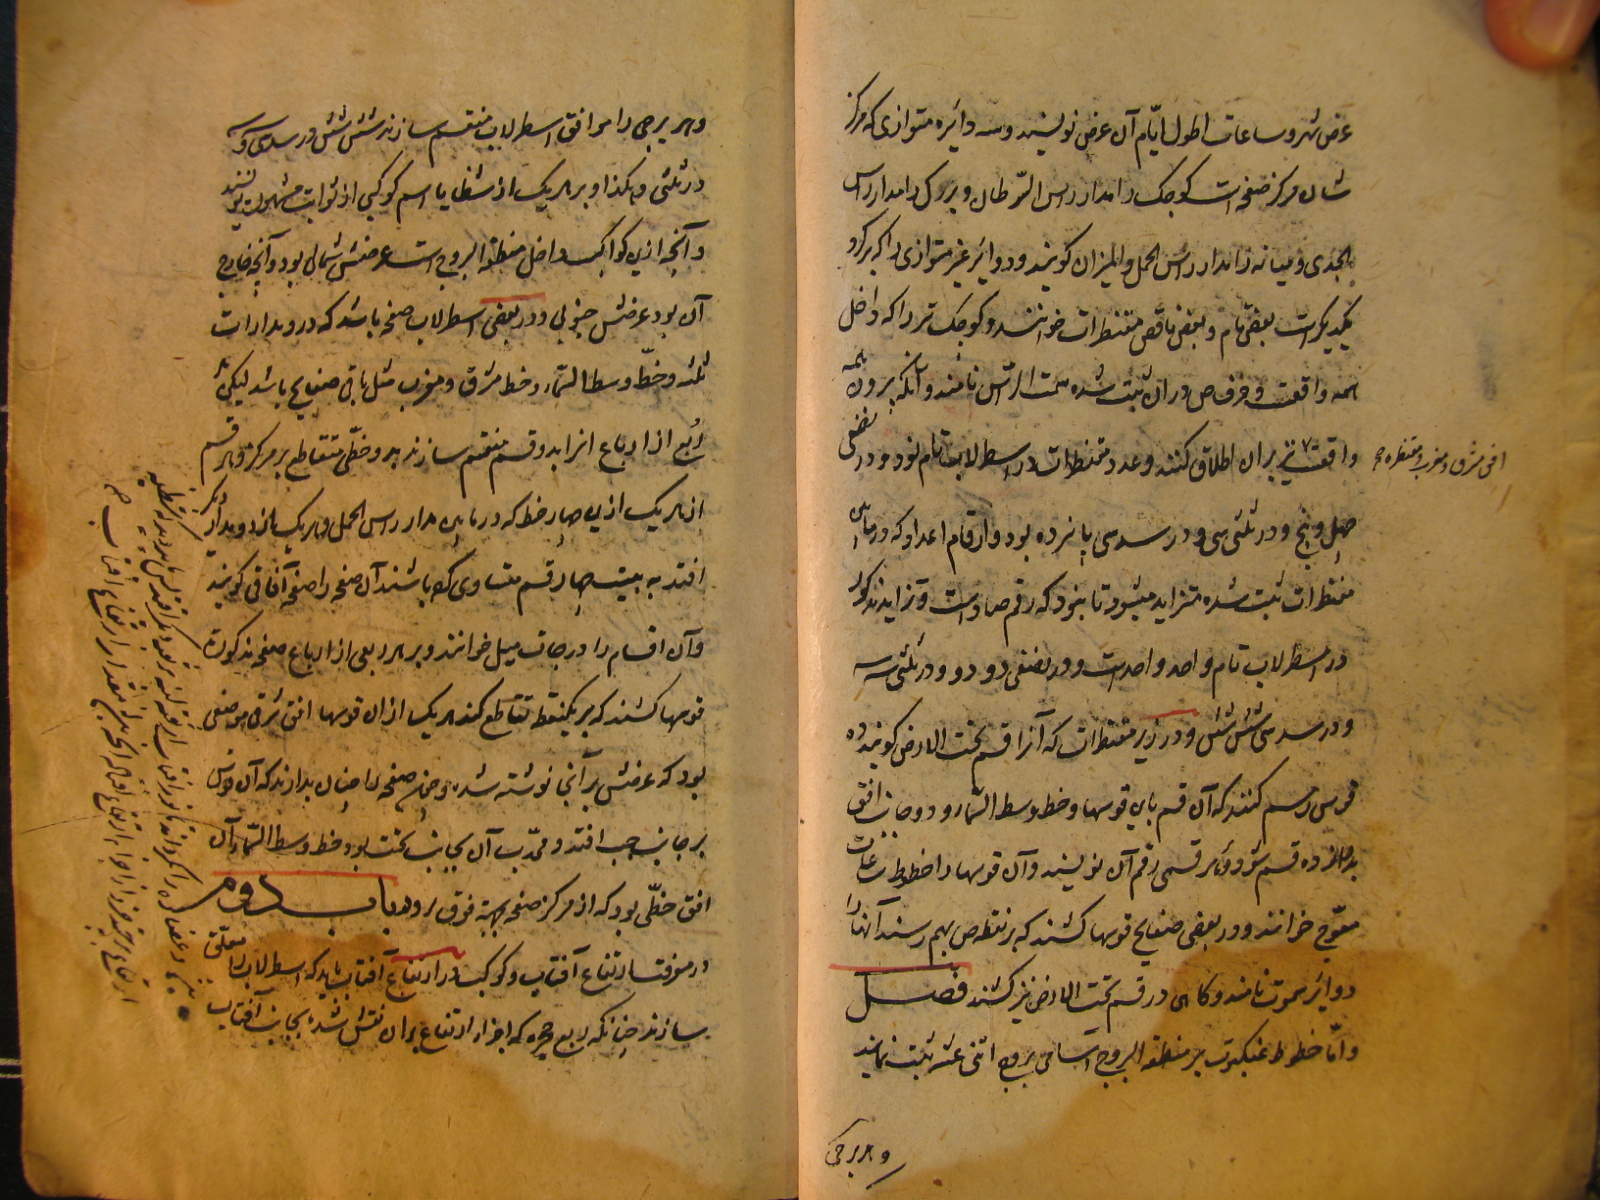 عرض شهر و ساعات اطول ایّام آن عرض نویسند و سه دائره متوازی که مرکز
شان مرکز صفحه است کوچک را مدار راس السّرطان و بزرک را مدار راس
الجدی و میانه را مدار راس الحمل و المیزان کویند و دوائر غیر متوازی را که بر کرد
یکدیکر است بعضی تام و بعضی ناقص مقنطرات خوانند و کوچک تر را که داخل
همه واقعست و حرف ص در ان ثبت شده سمت الراس نامند و آنکه برون همه
واقعست نیز بران اطلاق کنند و عدد مقنطرات در اسطرلاب تام نود و در نصفی
افق مشرق و مغرب و مقنطره
چهل و پنج و در ثلثی سی و در سدسی پانزده بود و ارقام اعداد که در مابین
مقنطرات ثبت شده متزاید میشود تا بنود که رقم ص است و تزاید مذکور
در اسطرلاب تام واحد واحد است و در نصفی دو دو و در ثلثی سه سه
و در سدسی شش شش و در زیر مقنطرات که آنرا قسم تحت الارض کویند ده
قوس رسم کنند که آن قسم باین قوسها و خط وسط السّما و دو جانب افق
بدوازده قسم شود و بر هر قسمی رقم آن نویسند و آن قوسها را خطوط ساعات
معوّج خوانند و در بعضی صفایح قوسها کشند که بر نقطه ص بهم رسند آنها را
دوائر سموت نامند و کاهی در قسم تحت الارض نیز کشند فصل
و امّا خطوط عنکبوت بر منطقة البروج اسامی بروج اثنی عشر ثبت نمایند
و هر برجی
و هر برجی را موافق اسطرلاب منقسم سازند شش شش در سدسی و سه
در ثلثی و هکذا و بر هر یک از شظایا اسم کوکبی از ثوابت مشهوره نویسند
و آنچه ازین کواکب داخل منطقة البروج است عرضش شمالی بود و آنچه خارج
آن بود عرضش جنوبی و در بعضی اسطرلاب صفحه باشد که در و مدارات
ثلثه و خطّ وسط السّما و خط مشرق و مغرب مثل باقی صفایح باشد لیکن هر
ربع از ارباع انرا بدو قسم منقسم سازند بدو خطّی متقاطع بر مرکز و هر قسم
از هر یک ازین چهار خط که در مابین مدار راس الحمل و هر یک از دو مدار دیکر
افتد به بیست چهار قسم متساوی کرده باشند آن صفحه را صفحه آفاقی کویند
و آن اقسام را درجات میل خوانند و بر هر ربعی از ارباع صفحه مذکوره
قوسها کشند که بر یکنقطه تقاطع کنند هر یک ازان قوسها افق شرقی موضعی
بود که عرضش بر آنجا نوشته شده و چون صفحه را چنان بدارند که آن قوس
بر جانب چپ افتد و محدّب آن بجانب تحت بود خط وسط السّما آن
افق خطّی بود که از مرکز صفحه بجهة فوق رود باب دوم
در معرفت ارتفاع آفتاب و کوکب در ارتفاع آفتاب باید که اسطرلاب را معلّق
سازند چنانکه ربع حجره که اجزاء ارتفاع بران نقش شده بجانب آفتاب